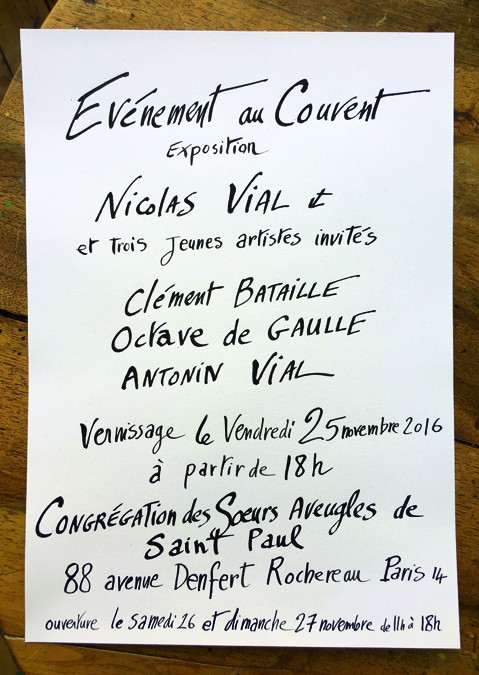 Evénement au Couvent
Exposition
Nicolas Vial
et trois jeunes artistes invités
Clément Bataille
Octave de Gaulle
Antonin Vial
Vernissage le Vendredi 25 novembre 2016
à partir de 18h
Congrégation des Soeurs Aveugles de
Saint Paul
88 avenue Denfert Rochereau Paris 14
ouverture le samedi 26 et dimanche 27 novembre de 11h à 18h